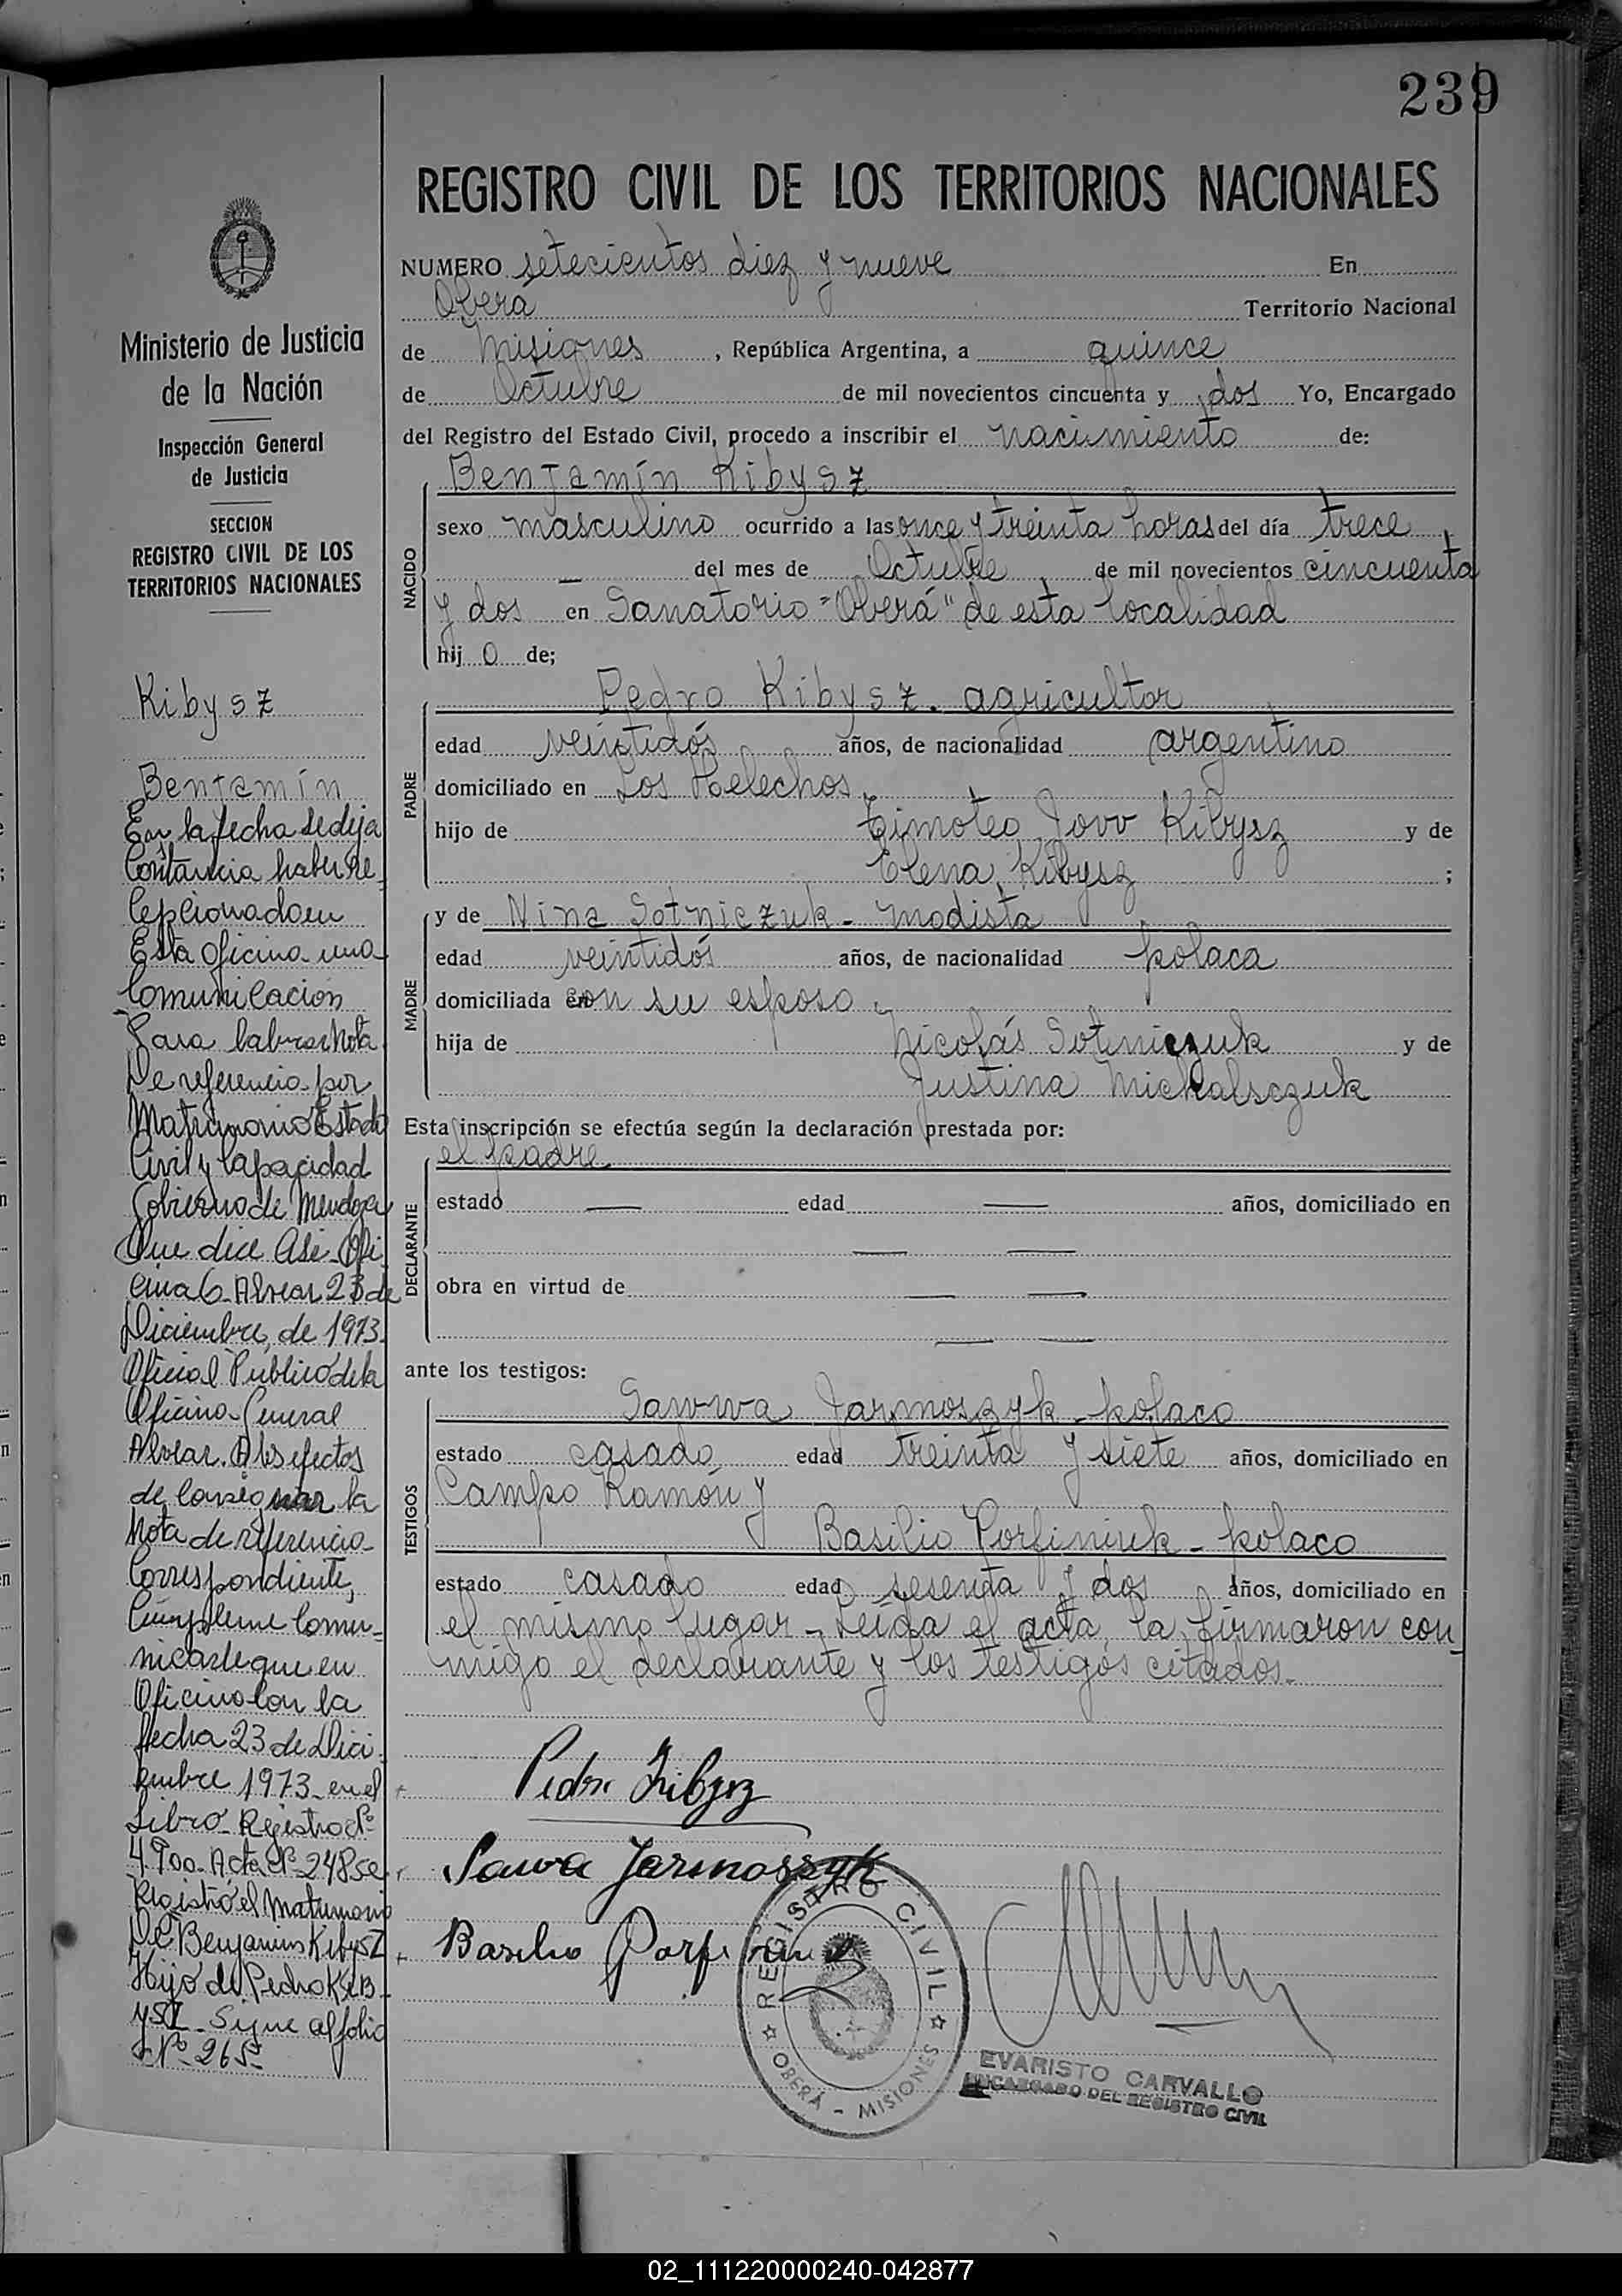 239
REGISTRO CIVIL DE LOS TERRITORIOS NACIONALES
NUMERO setecientos diez y nueve En
Oberá Territorio Nacional
de Misiones, República Argentina, a quince
de Octubre de mil novecientos cincuenta y dos Yo, Encargado
del Registro del Estado Civil, procedo a inscribir el nacimiento de:
NACIDO
Benjamín Kibysz
sexo masculino ocurrido a las once y treinta horas del día trece
— del mes de Octubre de mil novecientos cincuenta
y dos en Sanatorio "Oberá" de esta localidad
hij o de;
PADRE
Pedro Kibysz. agricultor
edad veintidós años, de nacionalidad argentino
domiciliado en Los Helechos
hijo de Timoteo Jovv Kibysz y de
Elena Kibysz ;
MADRE
y de Nina Sotniczuk - modista
edad veintidós años, de nacionalidad polaca
domiciliada en con su esposo
hija de Nicolás Sotniczuk y de
Justina Michalsczuk
Esta inscripción se efectúa según la declaración prestada por:
DECLARANTE
el padre
estado — edad — años, domiciliado en
— —
obra en virtud de — —
— —
ante los testigos:
TESTIGOS
Sawwa Jarmoszyk - polaco
estado casado edad treinta y siete años, domiciliado en
Campo Ramón y
Basilio Porfiniuk - polaco
estado casado edad sesenta y dos años, domiciliado en
el mismo lugar - Leída el acta, la firmaron con-
migo el declarante y los testigos citados.-
Pedro Kibysz
Sawa Jarmoszyk
Basilio
REGISTRO CIVIL
OBERÁ - MISIONES
EVARISTO CARVALLO
ENCARGADO DEL REGISTRO CIVIL
Ministerio de Justicia
de la Nación
Inspección General
de Justicia
SECCION
REGISTRO CIVIL DE LOS
TERRITORIOS NACIONALES
Kibysz
Benjamín
En la fecha se deja
Constancia haber re-
cepcionado en
Esta oficina una
Comunicación
Para labrar Nota
De referencia por
Matrimonio Estado
Civil y Capacidad
Gobierno de Mendoza
Que dice Asi - Ofi
cina G. Alvear 23 de
Diciembre, de 1973.
Oficial Publico de la
Oficina General
Alvear. A los efectos
de consignar la
Nota de referencia
Correspondiente,
Cumpleme Comu-
nicarle que en
Oficina con la
fecha 23 de Dici
embre 1973 - en el
Libro Registro Nº
4900 - Acta Nº 248 se
Registró el Matrimonio
De Benjamin Kibysz
Hijo de Pedro KiB
ysz - Sigue al folio
Nº 265-
02_111220000240-042877